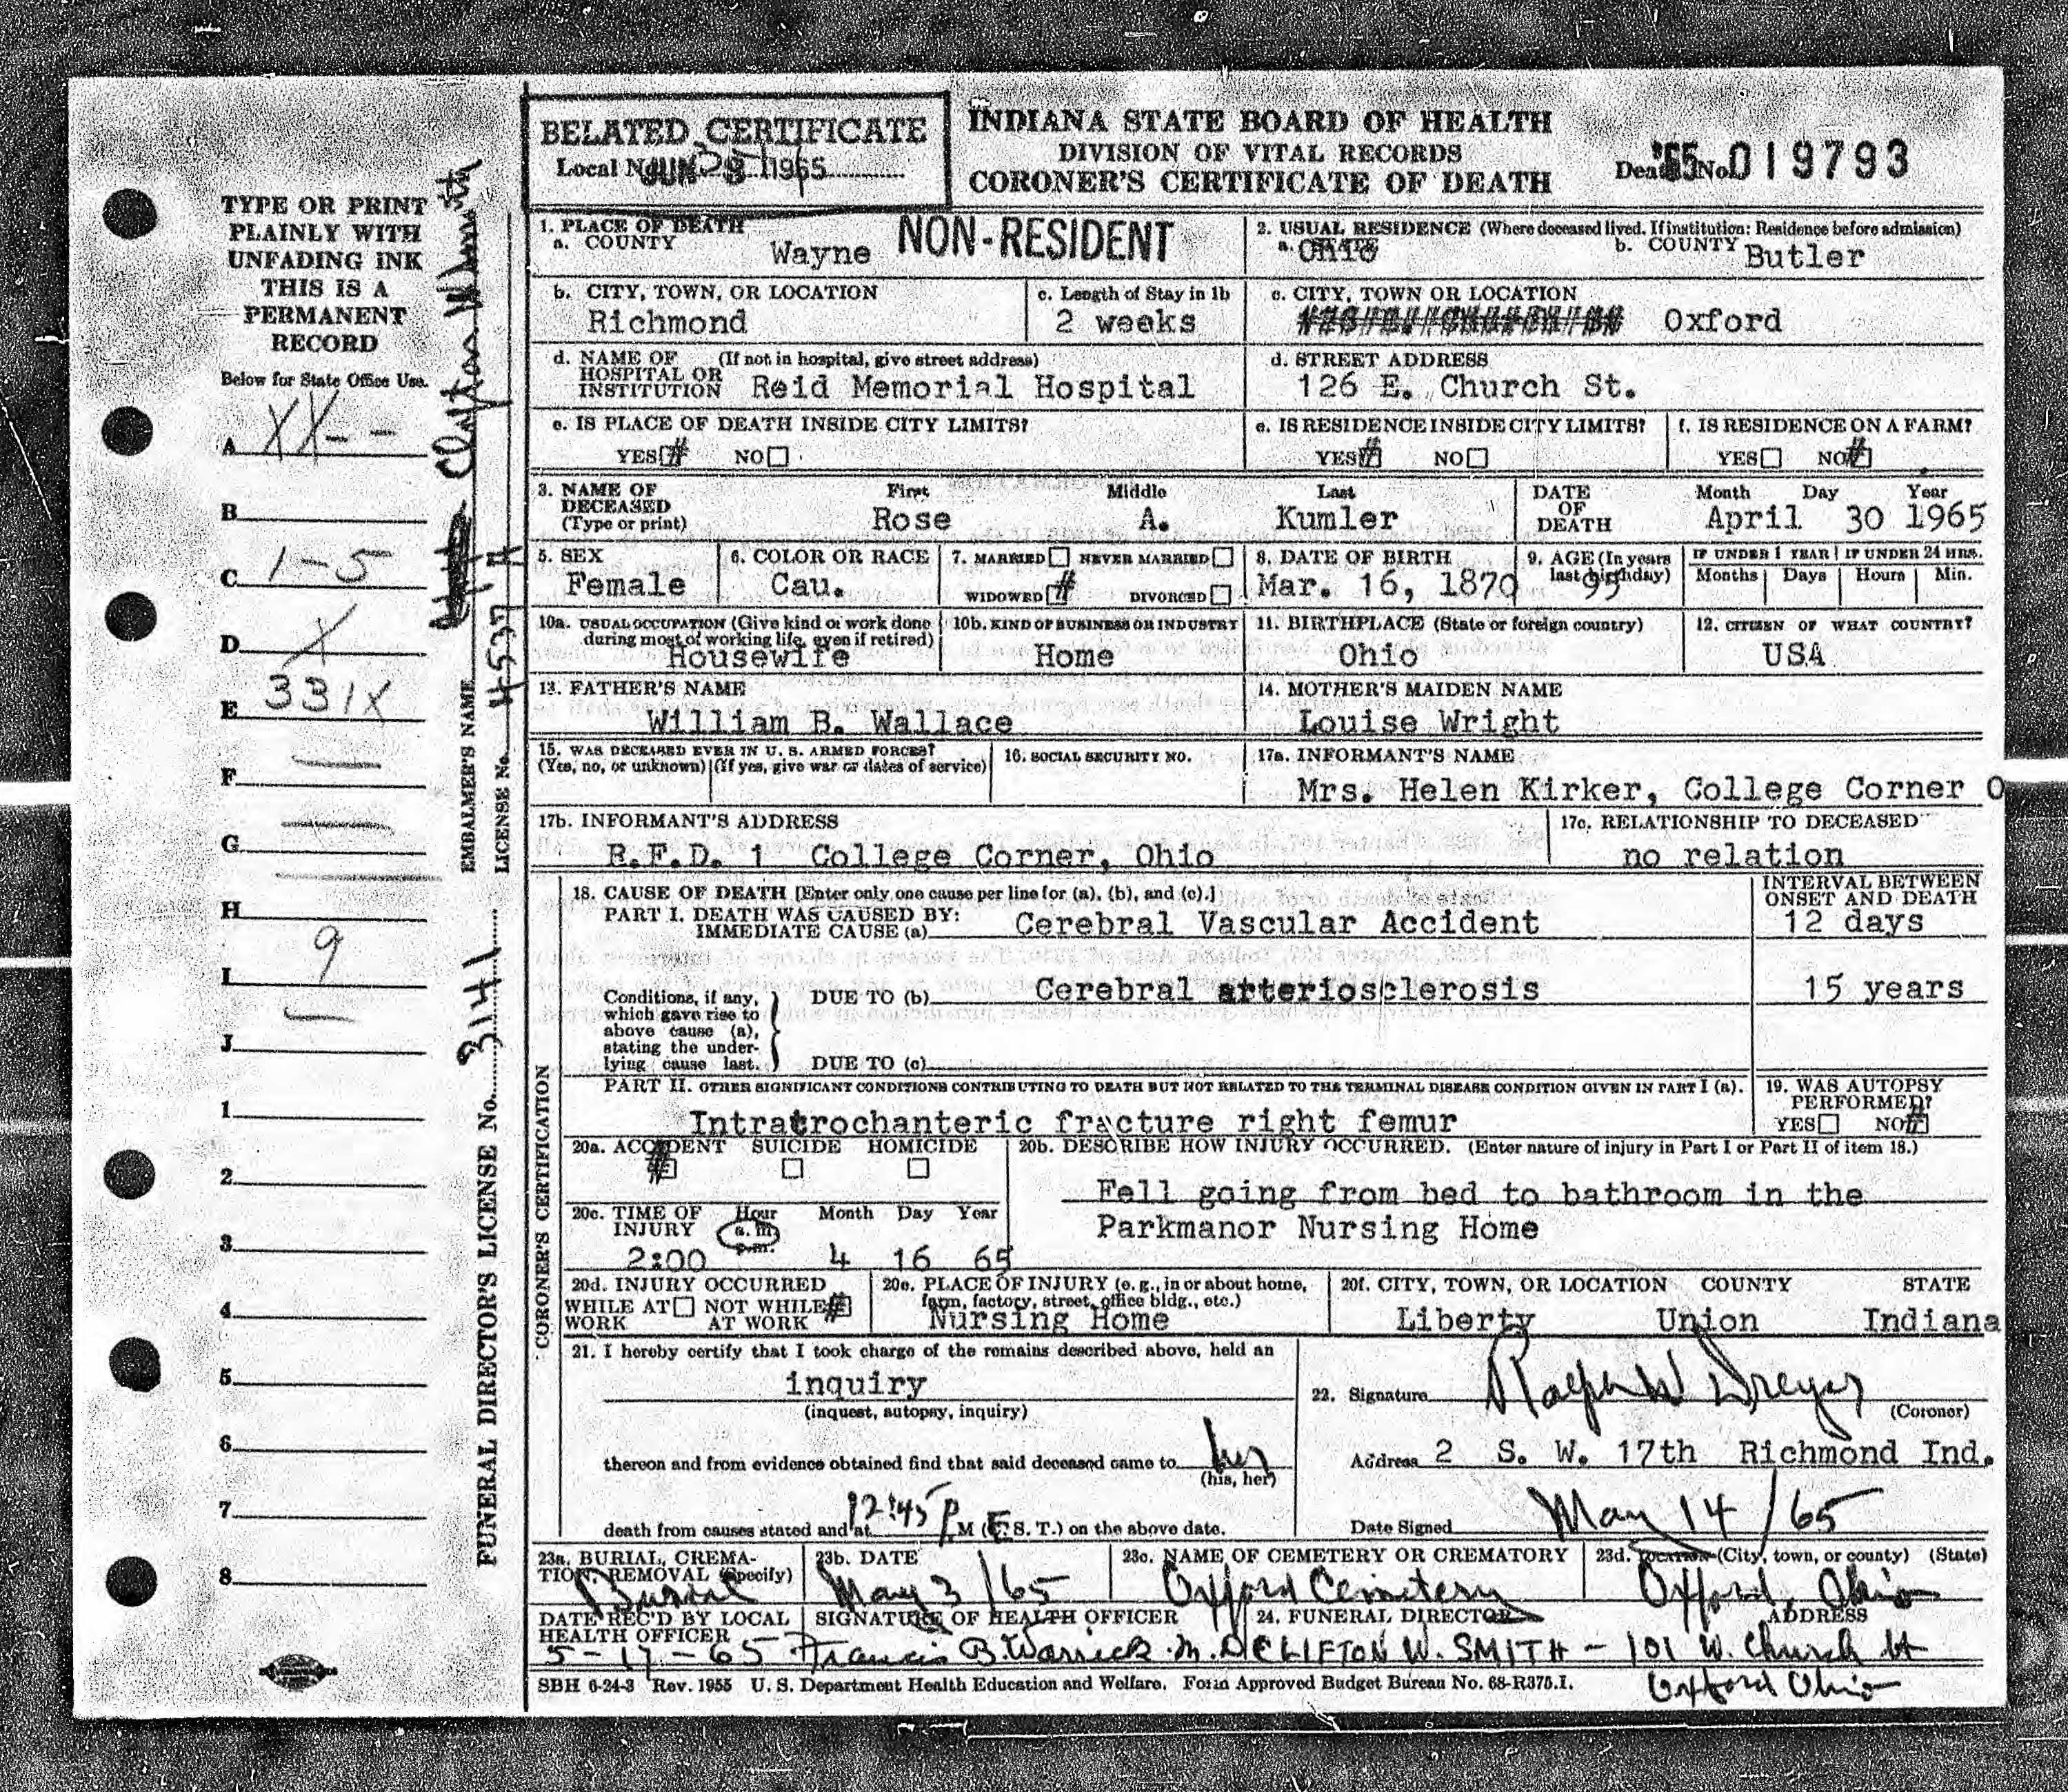 BELATED CERTIFICATE
Local No. JUN 28 1965
INDIANA STATE BOARD OF HEALTH
DIVISION OF VITAL RECORDS
CORONER'S CERTIFICATE OF DEATH
Death No. '65 019793
TYPE OR PRINT
PLAINLY WITH
UNFADING INK
THIS IS A
PERMANENT
RECORD
Below for State Office Use.
A XX--
B
C 1-5
D X
E 331X
F —
G
H
I 9
J —
1
2
3
4
5
6
7
8
EMBALMER'S NAME
LICENSE No. 4537A
FUNERAL DIRECTOR'S LICENSE No. 3141
1. PLACE OF DEATH
a. COUNTY Wayne NON-RESIDENT
2. USUAL RESIDENCE (Where deceased lived. If institution: Residence before admission)
a. STATE OHIO b. COUNTY Butler
b. CITY, TOWN, OR LOCATION Richmond
c. Length of Stay in 1b 2 weeks
c. CITY, TOWN OR LOCATION Oxford
d. NAME OF HOSPITAL OR INSTITUTION (If not in hospital, give street address) Reid Memorial Hospital
d. STREET ADDRESS 126 E. Church St.
e. IS PLACE OF DEATH INSIDE CITY LIMITS?
YES # NO
e. IS RESIDENCE INSIDE CITY LIMITS?
YES # NO
f. IS RESIDENCE ON A FARM?
YES NO #
3. NAME OF DECEASED (Type or print) First Rose Middle A. Last Kumler
DATE OF DEATH Month April Day 30 Year 1965
5. SEX Female
6. COLOR OR RACE Cau.
7. MARRIED NEVER MARRIED
WIDOWED # DIVORCED
8. DATE OF BIRTH Mar. 16, 1870
9. AGE (In years last birthday) 95
IF UNDER 1 YEAR Months Days
IF UNDER 24 HRS. Hours Min.
10a. USUAL OCCUPATION (Give kind of work done during most of working life, even if retired) Housewife
10b. KIND OF BUSINESS OR INDUSTRY Home
11. BIRTHPLACE (State or foreign country) Ohio
12. CITIZEN OF WHAT COUNTRY? USA
13. FATHER'S NAME William B. Wallace
14. MOTHER'S MAIDEN NAME Louise Wright
15. WAS DECEASED EVER IN U. S. ARMED FORCES?
(Yes, no, or unknown) (If yes, give war or dates of service)
16. SOCIAL SECURITY NO.
17a. INFORMANT'S NAME
Mrs. Helen Kirker, College Corner O
17b. INFORMANT'S ADDRESS
R.F.D. 1 College Corner, Ohio
17c. RELATIONSHIP TO DECEASED
no relation
18. CAUSE OF DEATH [Enter only one cause per line for (a), (b), and (c).]
INTERVAL BETWEEN ONSET AND DEATH
PART I. DEATH WAS CAUSED BY:
IMMEDIATE CAUSE (a) Cerebral Vascular Accident 12 days
Conditions, if any, which gave rise to above cause (a), stating the underlying cause last.
DUE TO (b) Cerebral arteriosclerosis 15 years
DUE TO (c)
PART II. OTHER SIGNIFICANT CONDITIONS CONTRIBUTING TO DEATH BUT NOT RELATED TO THE TERMINAL DISEASE CONDITION GIVEN IN PART I (a).
Intratrochanteric fracture right femur
19. WAS AUTOPSY PERFORMED?
YES NO #
CORONER'S CERTIFICATION
20a. ACCIDENT # SUICIDE HOMICIDE
20b. DESCRIBE HOW INJURY OCCURRED. (Enter nature of injury in Part I or Part II of item 18.)
Fell going from bed to bathroom in the
Parkmanor Nursing Home
20c. TIME OF INJURY Hour a.m. p.m. Month Day Year
2:00 4 16 65
20d. INJURY OCCURRED
WHILE AT WORK NOT WHILE AT WORK #
20e. PLACE OF INJURY (e. g., in or about home, farm, factory, street, office bldg., etc.)
Nursing Home
20f. CITY, TOWN, OR LOCATION COUNTY STATE
Liberty Union Indiana
21. I hereby certify that I took charge of the remains described above, held an
inquiry
(inquest, autopsy, inquiry)
thereon and from evidence obtained find that said deceased came to her
(his, her)
death from causes stated and at 12:45 P. M (E. S. T.) on the above date.
22. Signature Ralph W Dreyer
(Coroner)
Address 2 S. W. 17th Richmond Ind.
Date Signed May 14/65
23a. BURIAL, CREMATION, REMOVAL (Specify) Burial
23b. DATE May 3/65
23c. NAME OF CEMETERY OR CREMATORY Oxford Cemetery
23d. LOCATION (City, town, or county) (State) Oxford, Ohio
DATE REC'D BY LOCAL HEALTH OFFICER 5-17-65
SIGNATURE OF HEALTH OFFICER Francis B. Warrick M.D.
24. FUNERAL DIRECTOR ADDRESS
CLIFTON W. SMITH - 101 W. Church St
Oxford Ohio
SBH 6-24-3 Rev. 1955 U. S. Department Health Education and Welfare. Form Approved Budget Bureau No. 68-R375.1.